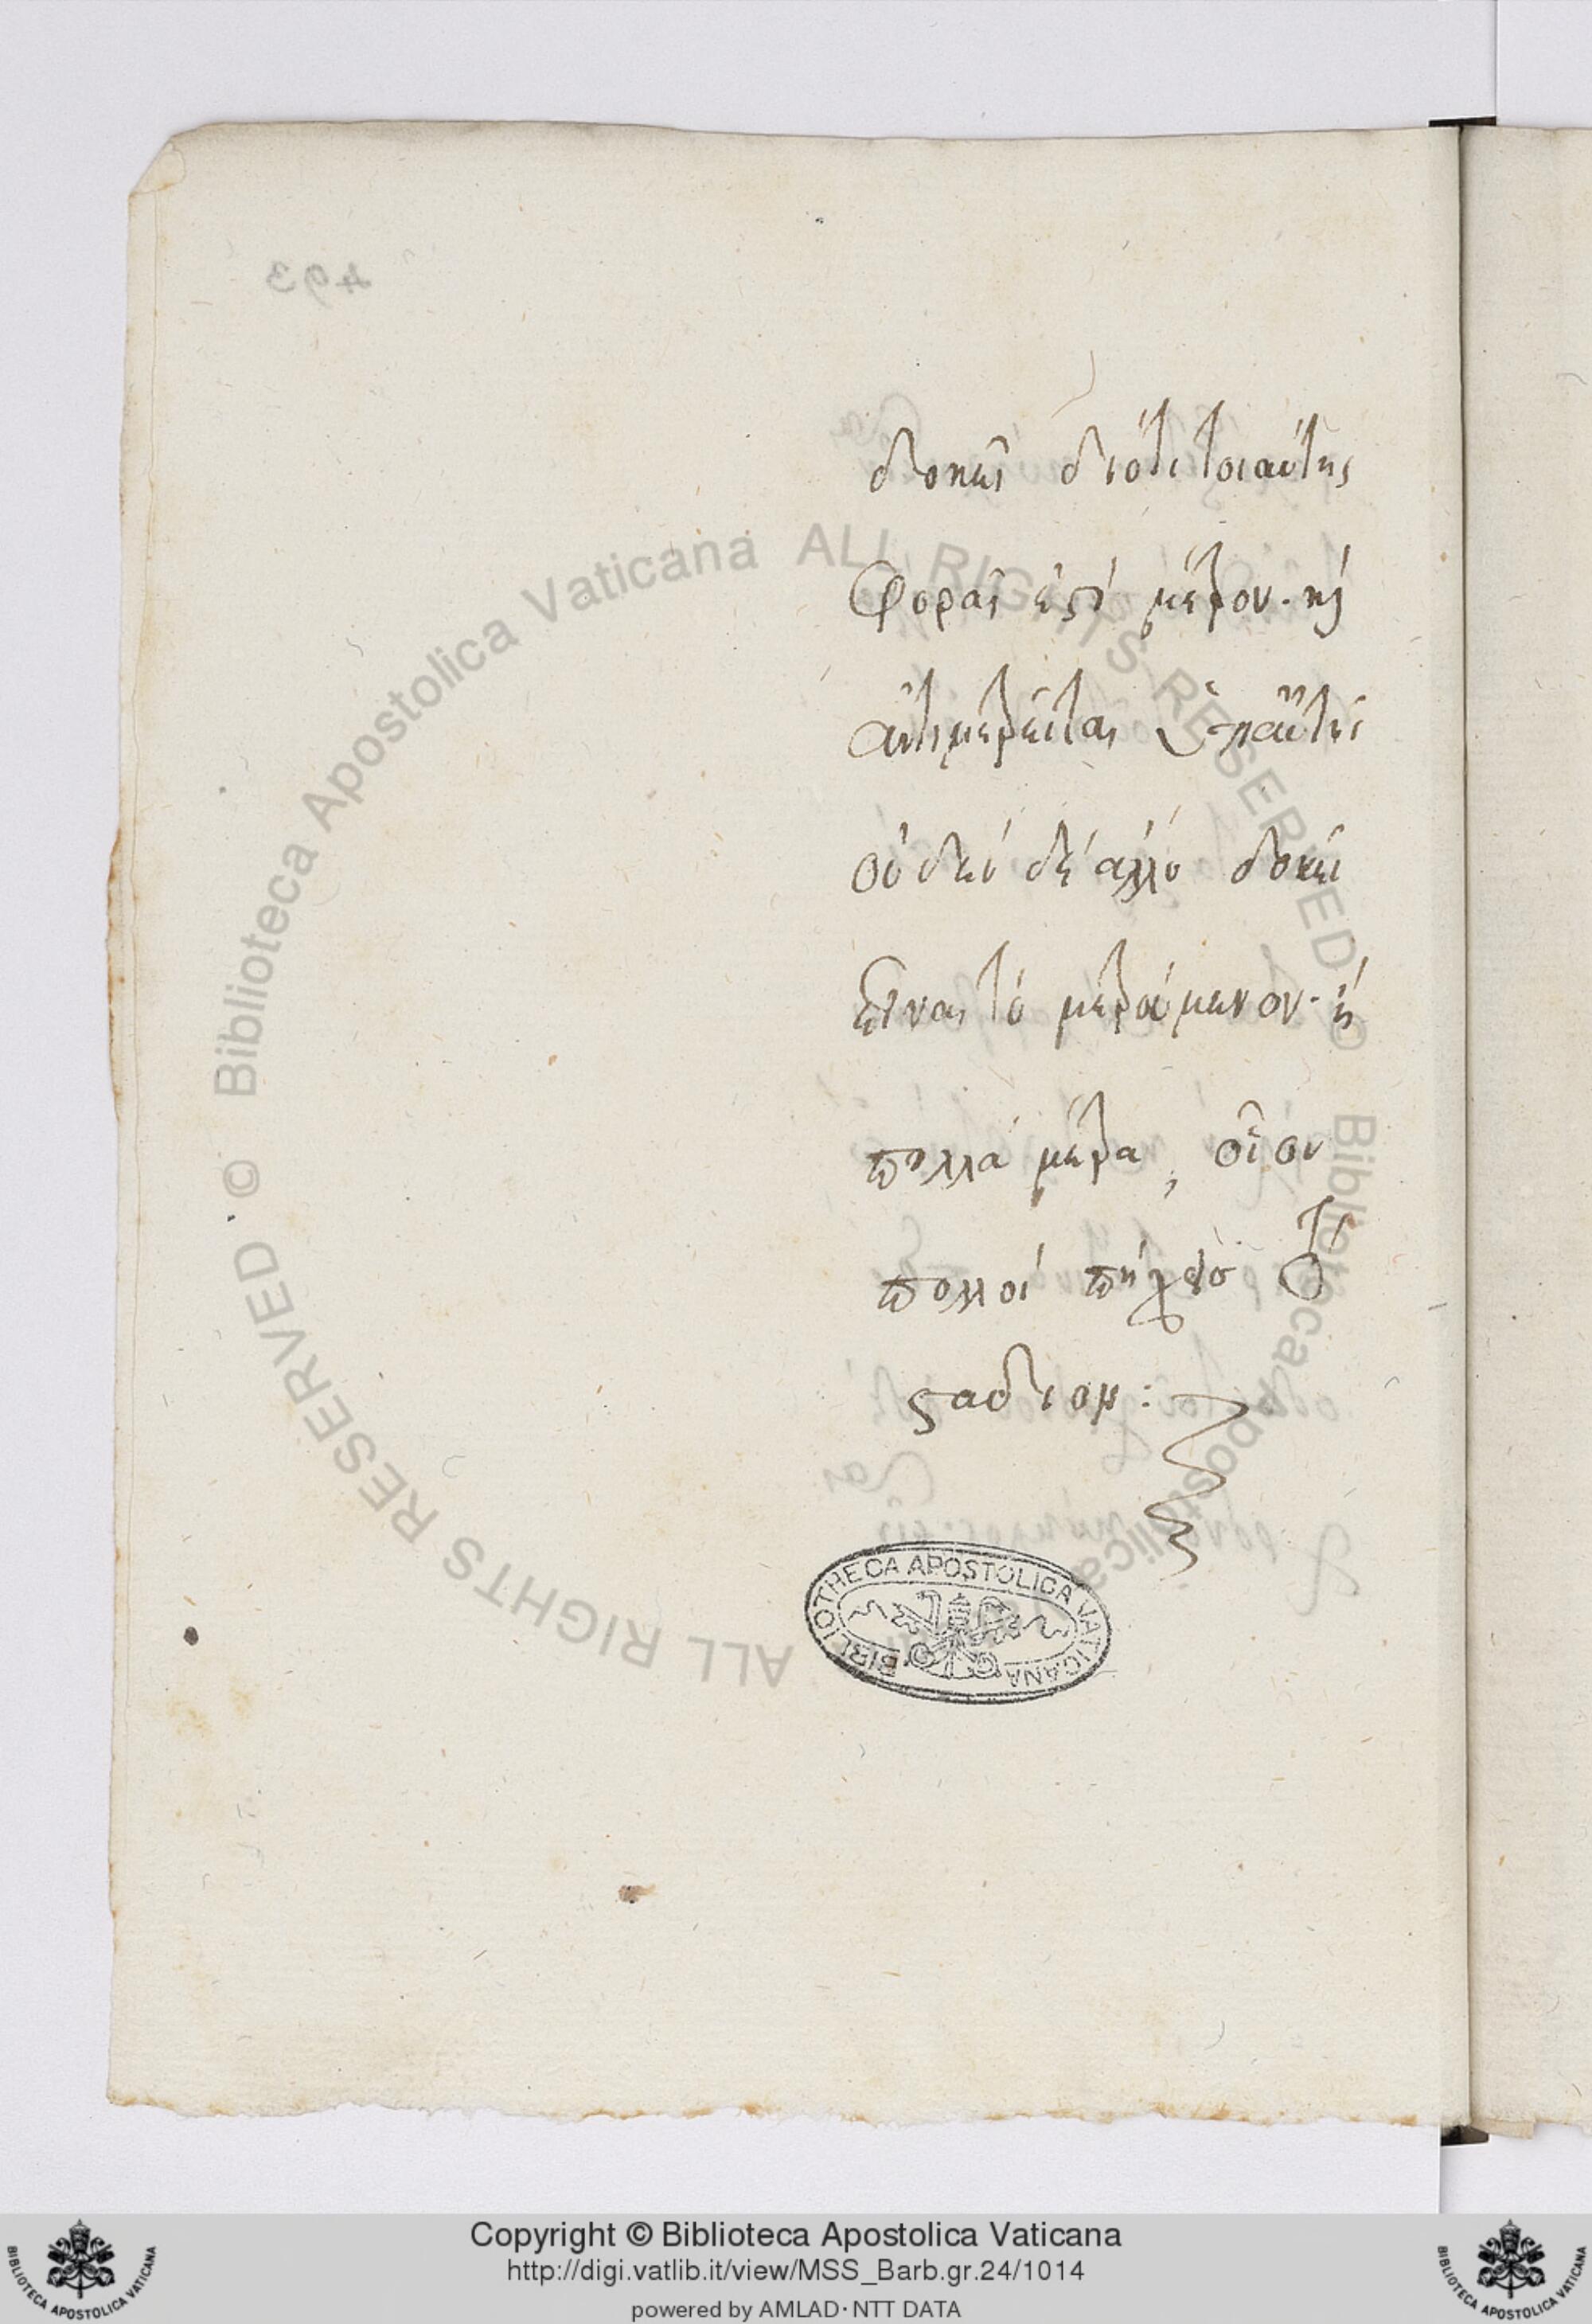 δοκεῖ διότι τοιαύτης
φορᾶς ἐστὶ μέτρον. καὶ
ἀντιμετρεῖται
οὐδὲν δὲ ἄλλο δοκεῖ
εἶναι τὸ μετρούμενον. ἢ
πολλὰ μέτρα, οἷον
πολλοὶ πήχεισ τὸ
στάδιον:
BIBLIOTHECA APOSTOLICA VATICANA
493
© Biblioteca Apostolica Vaticana ALL RIGHTS RESERVED © Biblioteca Apostolica Vaticana ALL RIGHTS RESERVED
Copyright © Biblioteca Apostolica Vaticana
http://digi.vatlib.it/view/MSS_Barb.gr.24/1014
powered by AMLAD·NTT DATA
BIBLIOTECA APOSTOLICA VATICANA
BIBLIOTECA APOSTOLICA VATICANA